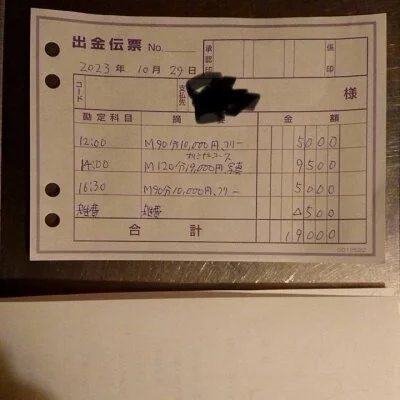 出金伝票 No.
承認印 係印
2023年10月29日
コード 支払先 様
勘定科目 摘要 金額
12:00 M90分10,000円、フリー 5000
14:00 M120分19,000円 写真 9500
16:30 M90分10,000円、フリー 5000
雑費 雑費 △500
合計 19000